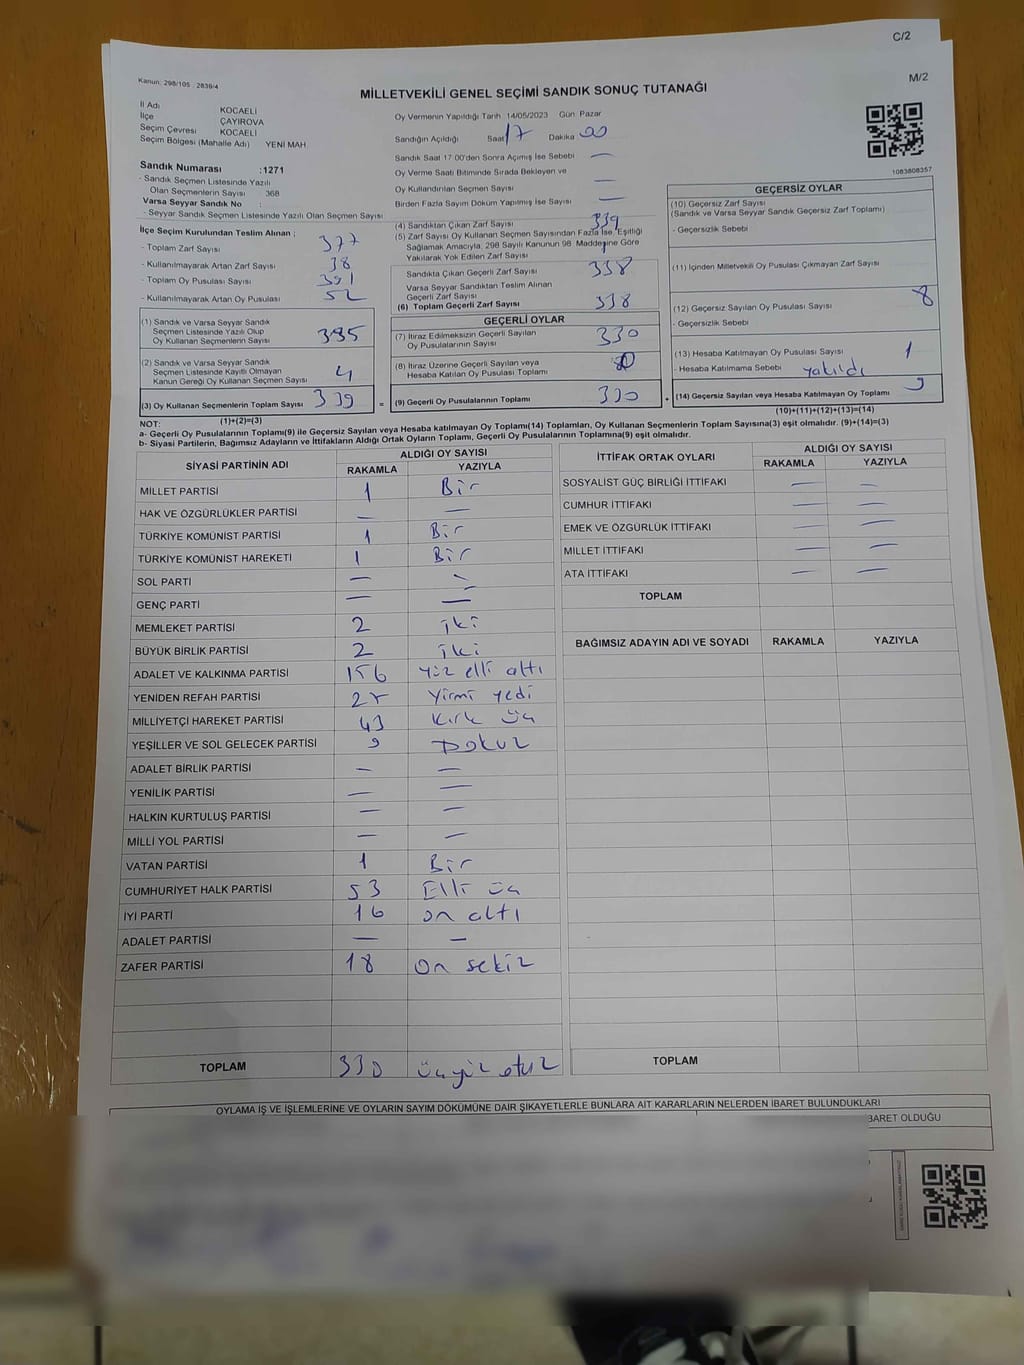 C/2
Kanun: 298/105 2839/4
M/2
MİLLETVEKİLİ GENEL SEÇİMİ SANDIK SONUÇ TUTANAĞI
İl Adı KOCAELİ
İlçe ÇAYIROVA
Seçim Çevresi KOCAELİ
Seçim Bölgesi (Mahalle Adı) YENİ MAH.
Sandık Numarası :1271
- Sandık Seçmen Listesinde Yazılı
Olan Seçmenlerin Sayısı 368
Varsa Seyyar Sandık No :
- Seyyar Sandık Seçmen Listesinde Yazılı Olan Seçmen Sayısı
Oy Vermenin Yapıldığı Tarih 14/05/2023 Gün: Pazar
Sandığın Açıldığı Saat 17 Dakika 00
Sandık Saat 17:00'den Sonra Açımış İse Sebebi —
Oy Verme Saati Bitiminde Sırada Bekleyen ve
Oy Kullandırılan Seçmen Sayısı —
Birden Fazla Sayım Döküm Yapılmış İse Sayısı —
1083808357
İlçe Seçim Kurulundan Teslim Alınan ;
- Toplam Zarf Sayısı 377
- Kullanılmayarak Artan Zarf Sayısı 38
- Toplam Oy Pusulası Sayısı 391
- Kullanılmayarak Artan Oy Pusulası 52
(1) Sandık ve Varsa Seyyar Sandık
Seçmen Listesinde Yazılı Olup
Oy Kullanan Seçmenlerin Sayısı 335
(2) Sandık ve Varsa Seyyar Sandık
Seçmen Listesinde Kayıtlı Olmayan
Kanun Gereği Oy Kullanan Seçmen Sayısı 4
(3) Oy Kullanan Seçmenlerin Toplam Sayısı 339 =
(1)+(2)=(3)
(4) Sandıktan Çıkan Zarf Sayısı 339
(5) Zarf Sayısı Oy Kullanan Seçmen Sayısından Fazla İse, Eşitliği
Sağlamak Amacıyla, 298 Sayılı Kanunun 98. Maddesine Göre
Yakılarak Yok Edilen Zarf Sayısı 1
Sandıkta Çıkan Geçerli Zarf Sayısı 338
Varsa Seyyar Sandıktan Teslim Alınan
Geçerli Zarf Sayısı
(6) Toplam Geçerli Zarf Sayısı 338
GEÇERLİ OYLAR
(7) İtiraz Edilmeksizin Geçerli Sayılan
Oy Pusulalarının Sayısı 330
(8) İtiraz Üzerine Geçerli Sayılan veya
Hesaba Katılan Oy Pusulası Toplamı
(9) Geçerli Oy Pusulalarının Toplamı 330 +
GEÇERSİZ OYLAR
(10) Geçersiz Zarf Sayısı
(Sandık ve Varsa Seyyar Sandık Geçersiz Zarf Toplamı)
- Geçersizlik Sebebi
(11) İçinden Milletvekili Oy Pusulası Çıkmayan Zarf Sayısı
(12) Geçersiz Sayılan Oy Pusulası Sayısı 8
- Geçersizlik Sebebi
(13) Hesaba Katılmayan Oy Pusulası Sayısı 1
- Hesaba Katılmama Sebebi yakıldı
(14) Geçersiz Sayılan veya Hesaba Katılmayan Oy Toplamı 9
(10)+(11)+(12)+(13)=(14)
NOT:
a- Geçerli Oy Pusulaları Toplamı(9) ile Geçersiz Sayılan veya Hesaba katılmayan Oy Toplamı(14) Toplamları, Oy Kullanan Seçmenlerin Toplam Sayısına(3) eşit olmalıdır. (9)+(14)=(3)
b- Siyasi Partilerin, Bağımsız Adayların ve İttifakların Aldığı Ortak Oyların Toplamı, Geçerli Oy Pusulalarının Toplamına(9) eşit olmalıdır.
SİYASİ PARTİNİN ADI ALDIĞI OY SAYISI
RAKAMLA YAZIYLA
MİLLET PARTİSİ 1 Bir
HAK VE ÖZGÜRLÜKLER PARTİSİ — —
TÜRKİYE KOMÜNİST PARTİSİ 1 Bir
TÜRKİYE KOMÜNİST HAREKETİ 1 Bir
SOL PARTİ — —
GENÇ PARTİ — —
MEMLEKET PARTİSİ 2 iki
BÜYÜK BİRLİK PARTİSİ 2 iki
ADALET VE KALKINMA PARTİSİ 156 Yüz elli altı
YENİDEN REFAH PARTİSİ 27 Yirmi yedi
MİLLİYETÇİ HAREKET PARTİSİ 43 Kırk üç
YEŞİLLER VE SOL GELECEK PARTİSİ 9 Dokuz
ADALET BİRLİK PARTİSİ — —
YENİLİK PARTİSİ — —
HALKIN KURTULUŞ PARTİSİ — —
MİLLİ YOL PARTİSİ — —
VATAN PARTİSİ 1 Bir
CUMHURİYET HALK PARTİSİ 53 Elli üç
İYİ PARTİ 16 on altı
ADALET PARTİSİ — —
ZAFER PARTİSİ 18 On sekiz
TOPLAM 330 üçyüz otuz
İTTİFAK ORTAK OYLARI ALDIĞI OY SAYISI
RAKAMLA YAZIYLA
SOSYALİST GÜÇ BİRLİĞİ İTTİFAKI — —
CUMHUR İTTİFAKI — —
EMEK VE ÖZGÜRLÜK İTTİFAKI — —
MİLLET İTTİFAKI — —
ATA İTTİFAKI — —
TOPLAM
BAĞIMSIZ ADAYIN ADI VE SOYADI RAKAMLA YAZIYLA
TOPLAM
OYLAMA İŞ VE İŞLEMLERİNE VE OYLARIN SAYIM DÖKÜMÜNE DAİR ŞİKAYETLERLE BUNLARA AİT KARARLARIN NELERDEN İBARET BULUNDUKLARI
BARET OLDUĞU